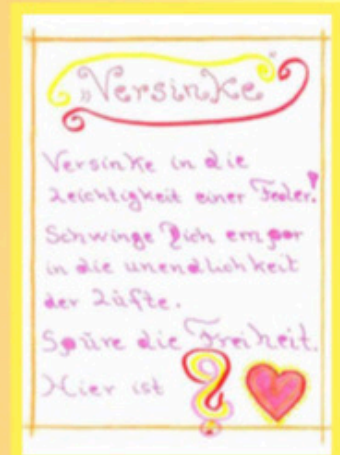 „Versinke“
Versinke in die
Leichtigkeit einer Feder!
Schwinge Dich empor
in die unendlichkeit
der Lüfte.
Spüre die Freiheit.
Hier ist ?